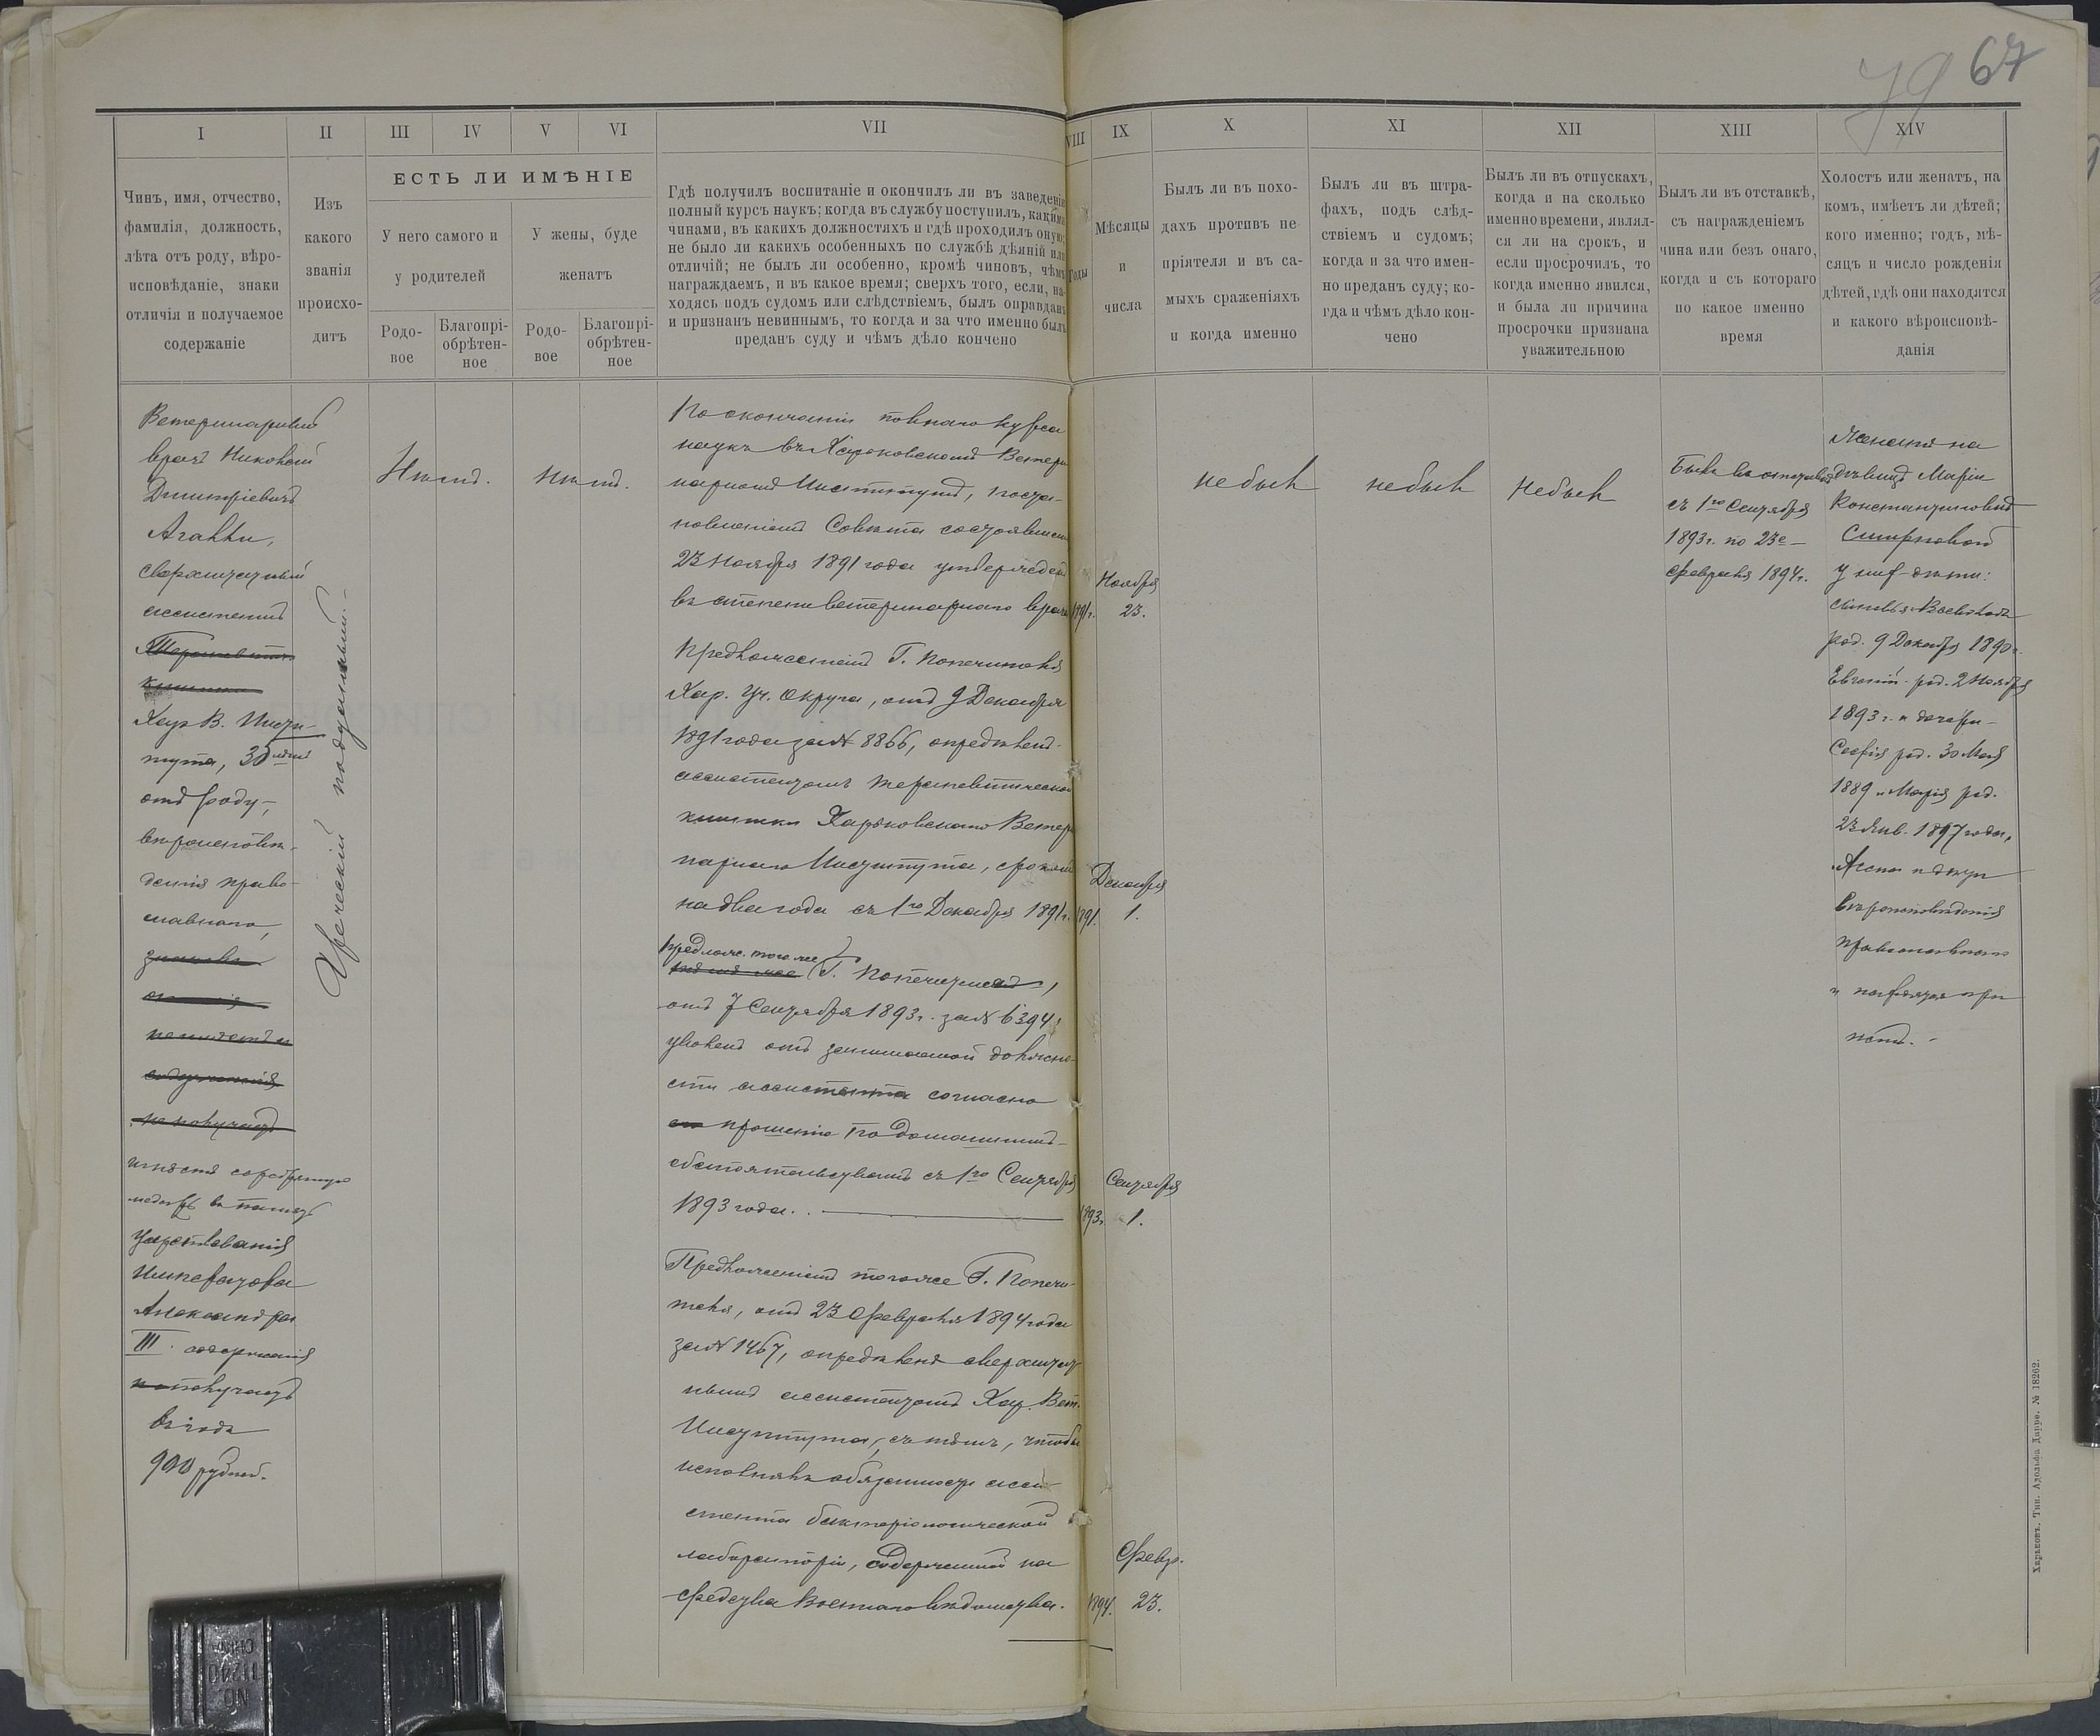 79 67
I
II
III
IV
V
VI
VII
VIII
IX
X
XI
XII
XIII
XIV
Чинъ, имя, отчество,
фамилія, должность,
лѣта отъ роду, вѣро-
исповѣданіе, знаки
отличія и получаемое
содержаніе
Изъ
какого
званія
происхо-
дитъ
ЕСТЬ ЛИ ИМѢНІЕ
У него самого и
у родителей
У жены, буде
женатъ
Родо-
вое
Благопрі-
обрѣтен-
ное
Родо-
вое
Благопрі-
обрѣтен-
ное
Гдѣ получилъ воспитаніе и окончилъ ли въ заведеніи
полный курсъ наукъ; когда въ службу поступилъ, какими
чинами, въ какихъ должностяхъ и гдѣ проходилъ оную;
не было ли какихъ особенныхъ по службѣ дѣяній или
отличій; не былъ ли особенно, кромѣ чиновъ, чѣмъ
награждаемъ, и въ какое время; сверхъ того, если, на-
ходясь подъ судомъ или слѣдствіемъ, былъ оправданъ
и признанъ невиннымъ, то когда и за что именно былъ
преданъ суду и чѣмъ дѣло кончено
Годы
Мѣсяцы
и
числа
Былъ ли въ похо-
дахъ противъ не-
пріятеля и въ са-
мыхъ сраженіяхъ
и когда именно
Былъ ли въ штра-
фахъ, подъ слѣд-
ствіемъ и судомъ;
когда и за что имен-
но преданъ суду; ко-
гда и чѣмъ дѣло кон-
чено
Былъ ли въ отпускахъ,
когда и на сколько
именно времени, являл-
ся ли на срокъ, и
если просрочилъ, то
когда именно явился,
и была ли причина
просрочки признана
уважительною
Былъ ли въ отставкѣ,
съ награжденіемъ
чина или безъ онаго,
когда и съ котораго
по какое именно
время
Холостъ или женатъ, на
комъ, имѣетъ ли дѣтей;
кого именно; годъ, мѣ-
сяцъ и число рожденія
дѣтей, гдѣ они находятся
и какого вѣроисповѣ-
данія
Ветеринарный
врачъ Николай
Дмитріевичъ
Агалли,
сверхштатный
ассистентъ
Терапевтич.
клиники
Харь. В. Инсти-
тута, 35 лѣтъ
отъ роду,
вѣроисповѣ-
данія право-
славнаго,
знаковъ
отличія
не имѣетъ и
содержанія
не получаетъ
имѣетъ серебряную
медаль въ память
Царствованія
Императора
Александра
III. содержанія
не получаетъ
въ годъ
900 рублей.
Греческій подданный.
Нѣтъ.
Нѣтъ.
По окончаніи полнаго курса
наукъ въ Харьковскомъ Ветери-
нарномъ Институтѣ, поста-
новленіемъ Совѣта состоявшимся
23 Ноября 1891 года утвержденъ
въ степени ветеринарнаго врача
1891 г.
Ноября
23.
Предложеніемъ Г. Попечителя
Хар. Уч. Округа, отъ 9 Декабря
1891 года за № 8866, опредѣленъ
ассистентомъ терапевтической
клиники Харьковскаго Ветери-
нарнаго Института, срокомъ
на два года съ 1го Декабря 1891 г.
1891.
Декабря
1.
предлож. того же
Г. Попечителя,
отъ 7 Сентября 1893 г. за № 6394,
уволенъ отъ занимаемой должно-
сти ассистента согласно
прошенію по домашнимъ
обстоятельствамъ съ 1го Сентября
1893 года.
1893 г.
Сентября
1.
Предложеніемъ того же Г. Попечи-
теля, отъ 23 Февраля 1894 года
за № 1467, опредѣленъ сверхштат-
нымъ ассистентомъ Хар. Вет.
Института, съ тѣмъ, чтобы
исполнялъ обязанности асси-
стента бактеріологической
лабораторіи, содержимой на
средства Военнаго вѣдомства.
1894.
Февр.
23.
не былъ
не былъ
не былъ
Былъ въ отставкѣ
съ 1го Сентября
1893 г. по 23е
Февраля 1894 г.
Женатъ на
дѣвицѣ Маріи
Константиновнѣ
Смирновой
у нихъ дѣти:
сыновья Всеволодъ
род. 9 Декабря 1890 г.
Евгеній род. 2 Ноября
1893 г. и дочери
Софія род. 30 Мая
1889 и Марія род.
23 Янв. 1897 года,
Жена и дѣти
вѣроисповѣданія
православнаго
и находятся при
немъ.
Харьковъ. Тип. Адольфа Дарре. № 18262.